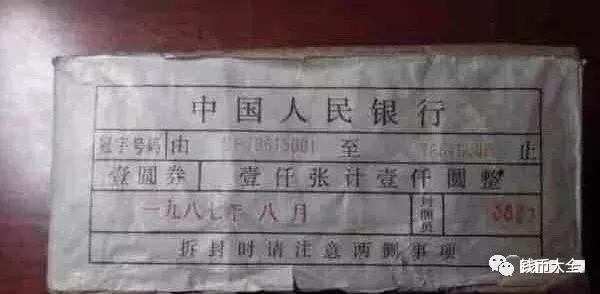 中国人民银行
冠字号码 由 至 止
壹圆券 壹仟张计壹仟圆整
一九八七年八月 封捆员
拆封时请注意两侧事项
钱币大全